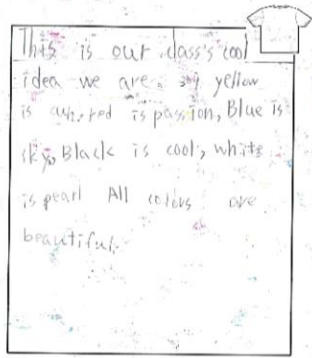 This is our class's cool
idea we are. say yellow
is red is passion, Blue is
sky, Black is cool, white
is pearl All colors are
beautiful.